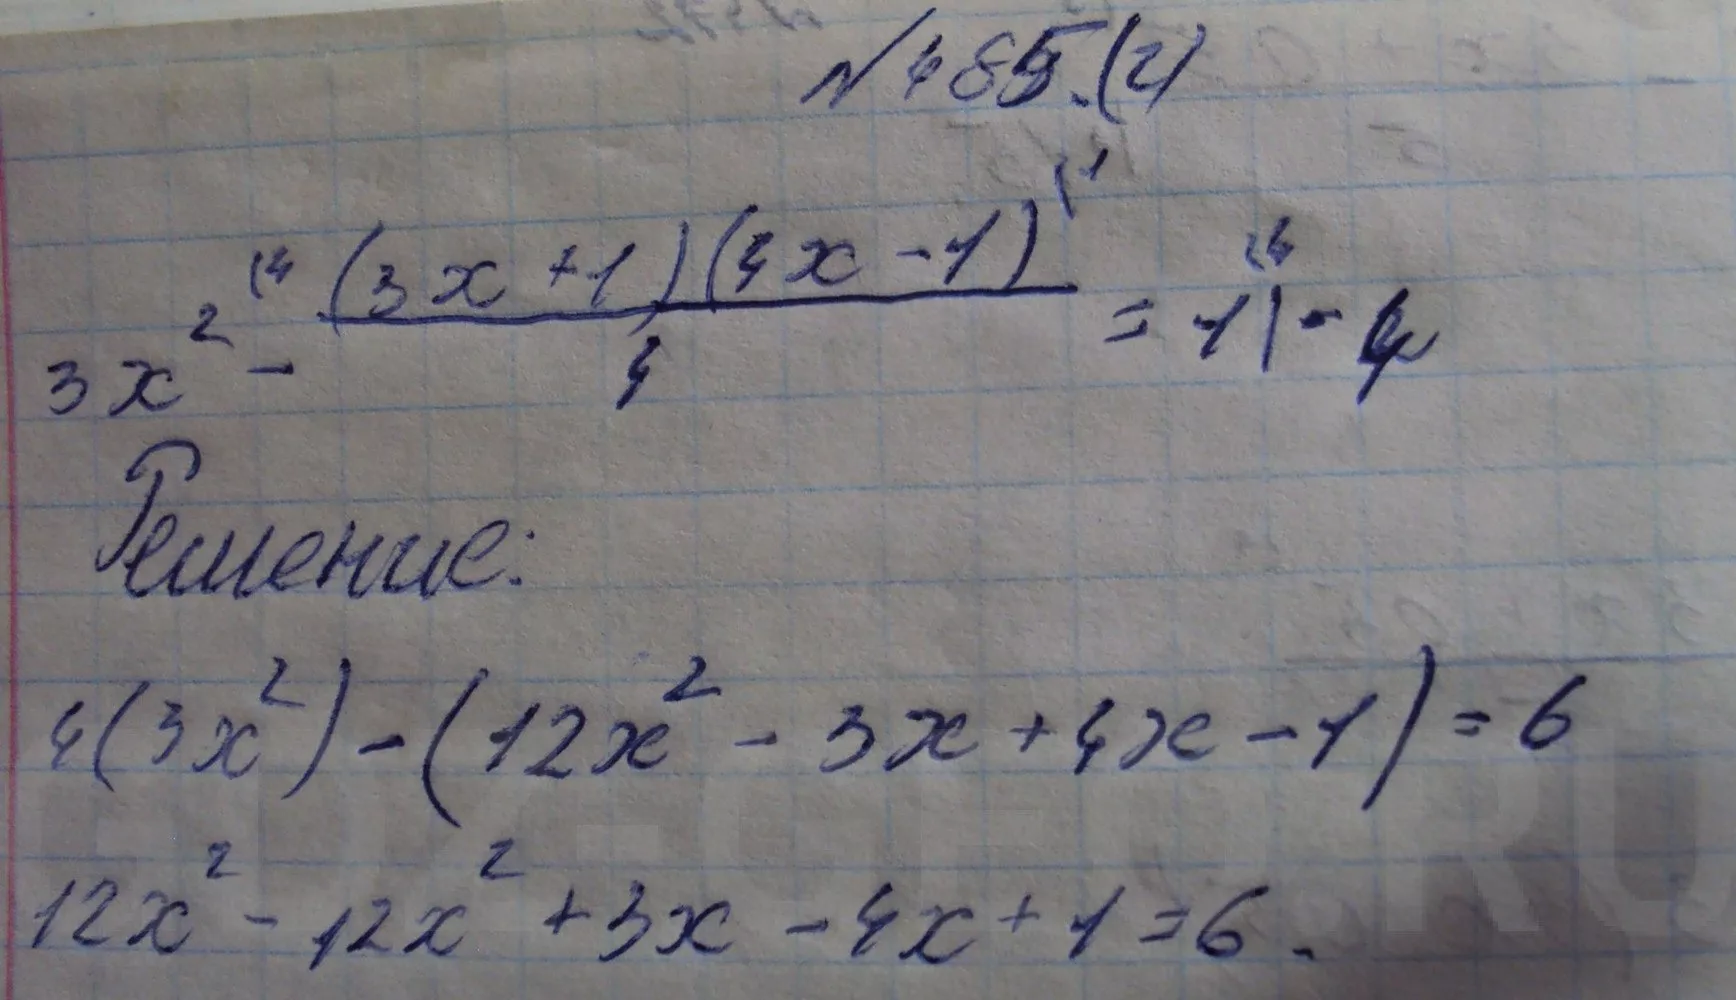 № 485.(2)
3x² - (3x+1)(4x-1) / 4 = 1
Решение:
4(3x²) - (12x² - 3x + 4x - 1) = 6
12x² - 12x² + 3x - 4x + 1 = 6.